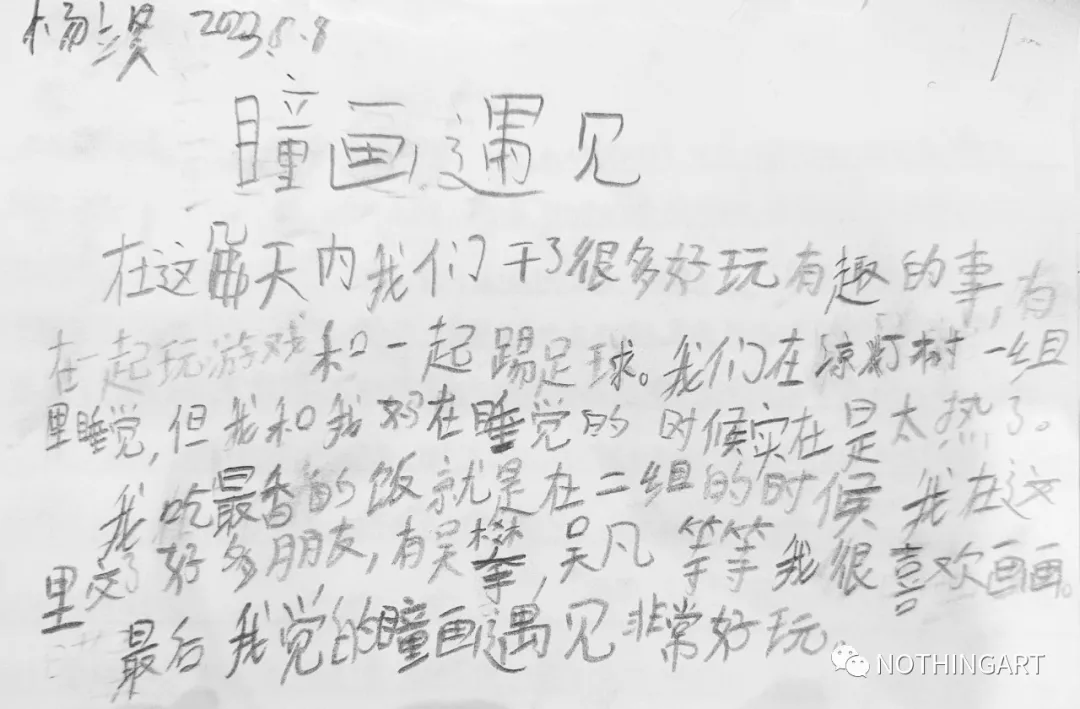 杨 2023.5.8
瞳画遇见
在这几天内我们干了很多好玩有趣的事,有
在一起玩游戏和一起踢足球。我们在凉灯村一组
里睡觉,但我和我妈在睡觉的时候实在是太热了。
我吃最香的饭就是在二组的时候 我在这
里交了好多朋友,有吴攀,吴凡 等等 我很喜欢画画。
最后我觉的瞳画遇见非常好玩.
NOTHINGART